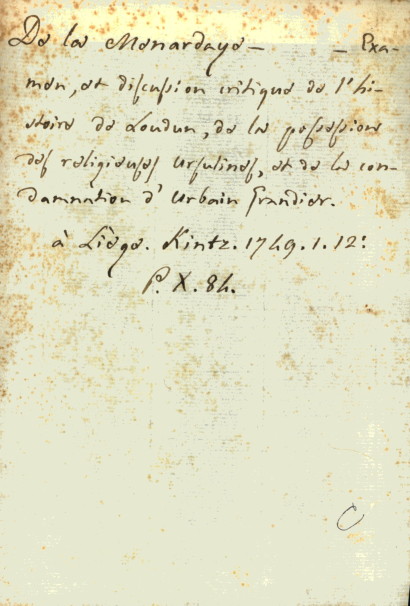 De la Menardaye — — Exa-
men, et discussion critique de l'hi-
stoire de Loudun, de la possession
des religieuses ursulines, et de la con-
damnation d'Urbain Grandier.
à Liége. Kintz. 1749. 1. 12º
P. X. 84.
C